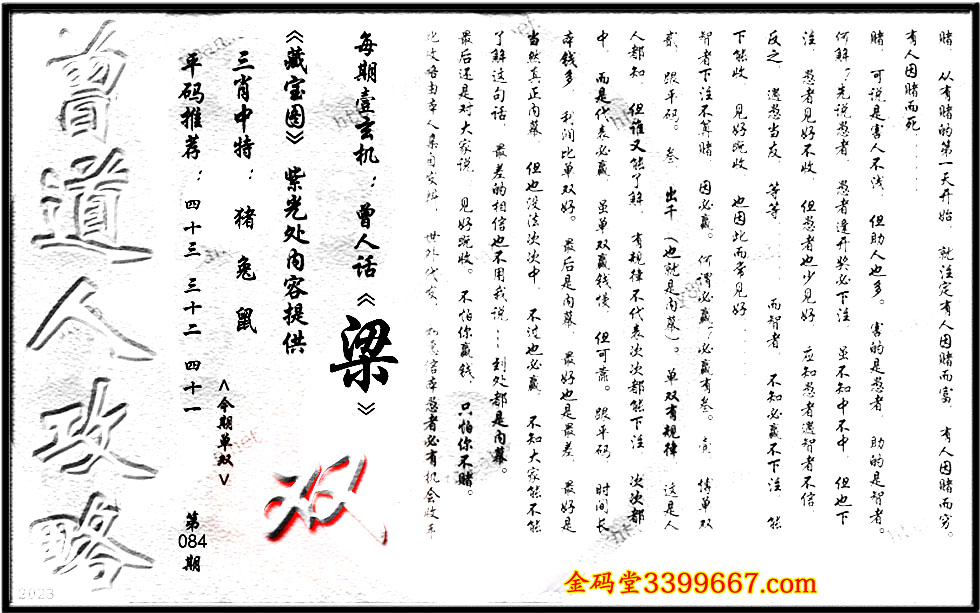 赌、从有赌的第一天开始、就注定有人因赌而富、有人因赌而穷。
有人因赌而死……
赌、可说是害人不浅、但助人也多。害的是愚者、助的是智者。
何解?先说愚者、愚者逢开奖必下注、虽不知中不中、但也下
注、愚者见好不收、但愚者也少见好、应知愚者遇智者不信、
反之、遇愚当友、等等……而智者、不知必赢不下注、能
下能收、见好就收、也因此而常见好……
智者下注不算赌、因必赢。何谓必赢?必赢有叁。壹、博单双
贰、跟平码。叁、出千(也就是内幕)。单双有规律、这是人
人都知、但谁又能了解、有规律不代表次次都能下注、次次都
中、而是代表必赢、虽单双赢钱慢、但可靠。跟平码、时间长
本钱多、利润比单双好。最后是内幕、最好也是最差、最好是
当然真正内幕、但也没法次次中、不过也必赢、不知大家能不能
了解这句话、最差的相信也不用我说……到处都是内幕。
最后还是对大家说、见好就收。不怕你赢钱、只怕你不赌。
每期壹玄机：曾人话《梁》
《藏宝图》紫光处内容提供
三肖中特：猪 兔 鼠
平码推荐：四十三 三十二 四十一
<今期单双>
双
第084期
曾道人攻略
2023
金码堂3399667.com